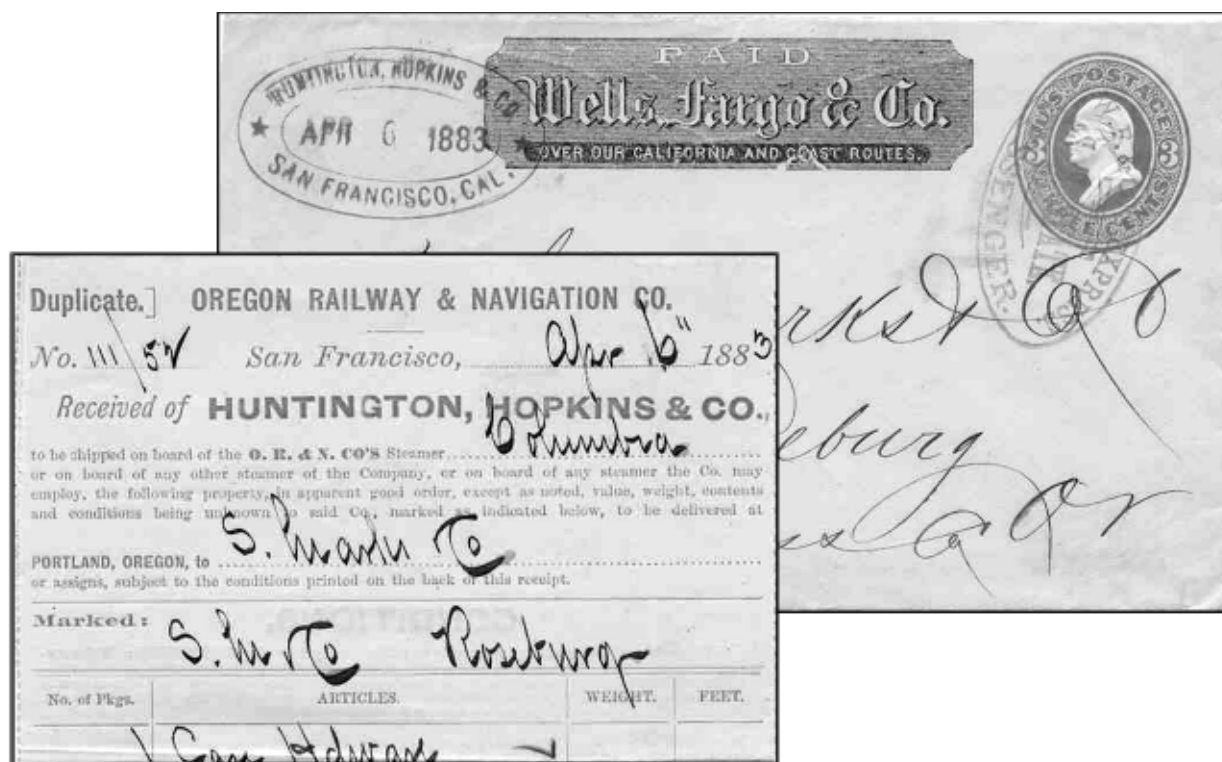 HUNTINGTON, HOPKINS & CO
APR 6 1883
SAN FRANCISCO, CAL.
PAID
Wells, Fargo & Co.
OVER OUR CALIFORNIA AND COAST ROUTES.
U.S. POSTAGE
3 3
THREE CENTS
Duplicate.] OREGON RAILWAY & NAVIGATION CO.
No. 111/52 San Francisco, Apr 6" 1883
Received of HUNTINGTON, HOPKINS & CO.,
to be shipped on board of the O. R. & N. CO'S Steamer Columbia
or on board of any other steamer of the Company, or on board of any steamer the Co. may
employ, the following property, in apparent good order, except as noted, value, weight, contents
and conditions being unknown to said Co., marked as indicated below, to be delivered at
PORTLAND, OREGON, to S. Marks & Co
or assigns, subject to the conditions printed on the back of this receipt.
Marked: S. M & Co Roseburg
No. of Pkgs. ARTICLES. WEIGHT. FEET.
1 Case Hdware
rks & Co
eburg
ss Co Or